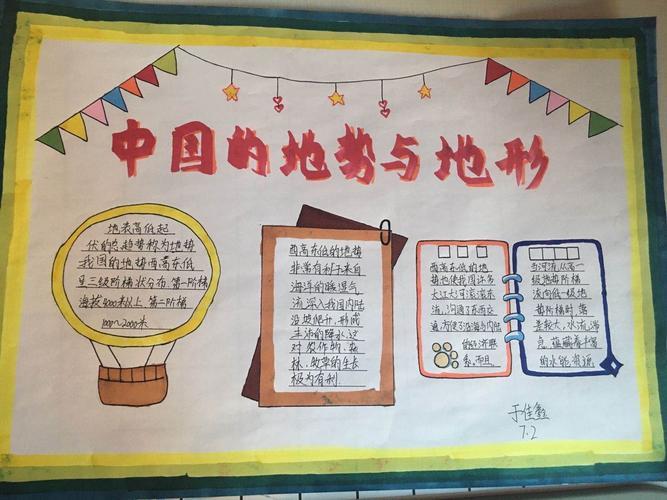 中国的地势与地形
地表高低起
伏的总趋势称为地势
我国的地势西高东低
呈三级阶梯状分布 第一阶梯
海拔4000米以上 第二阶梯
1000~2000米
西高东低的地势
非常有利于来自
海洋的暖湿气
流深入我国内陆
沿坡爬升，形成
生活的降水，这
对农作物、森
林、牧草的生长
极为有利.
西高东低的地
势也使我国许多
大江大河滚滚东
流，沟通了东西交
通，方便了沿海与内陆
的经济联
系。而且
当河流从高一
级地势阶梯
流向低一级地
势阶梯时，落
差较大，水流湍
急，蕴藏着丰富
的水能资源
于佳鑫
7.2